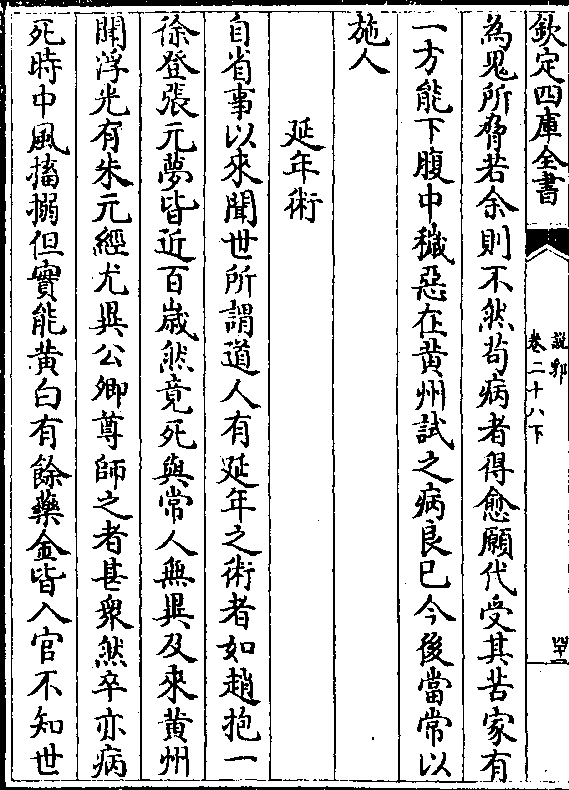 欽定四庫全書
說郛
卷二十八下
為鬼所脅若余則不然苟病者得愈願代受其苦家有
一方能下腹中穢惡在黄州試之病良已今後當常以
施人
延年術
自省事以來聞世所謂道人有延年之術者如趙抱一
徐登張元夢皆近百歲然竟死與常人無異及來黄州
聞浮光有朱元經尤異公卿尊師之者甚衆然卒亦病
死時中風搐搦但實能黄白有餘藥金皆入官不知世